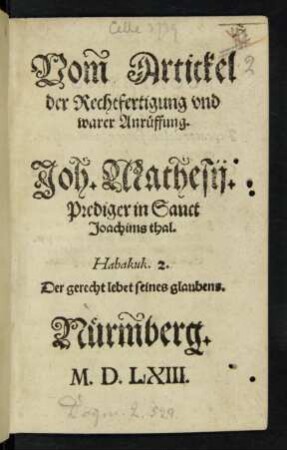 Celle 1779
2
Vom̃ Artickel
der Rechtfertigung vnd
warer Anrůffung.
Joh. Mathesij.
Prediger in Sanct
Joachims thal.
Habakuk. 2.
Der gerecht lebet seines glaubens.
Nůrm̃berg.
M. D. LXIII.
Dogm. 2. 529